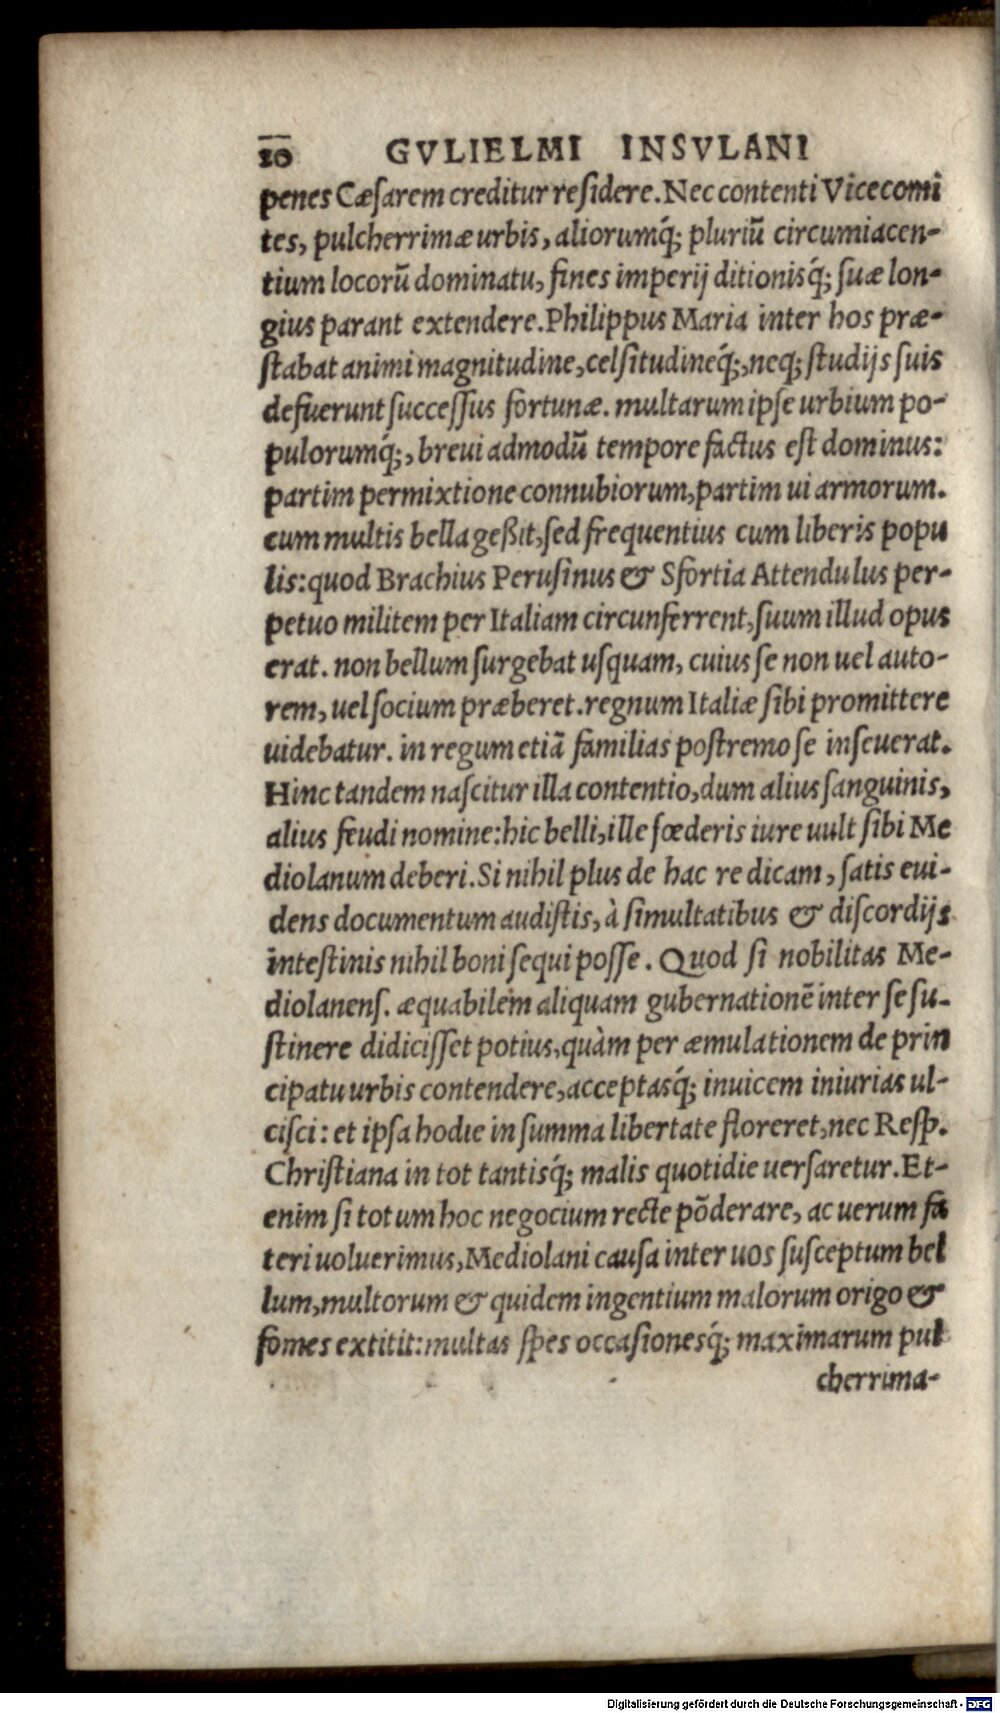 10 GVLIELMI INSVLANI
penes Cæſarem creditur reſidere. Nec contenti Vicecomi
tes, pulcherrimæ urbis, aliorumq́; pluriū circumiacen-
tium locorū dominatu, fines imperij ditionisq́; ſuæ lon-
gius parant extendere. Philippus Maria inter hos præ-
ſtabat animi magnitudine, celſitudineq́;, neq; ſtudijs ſuis
defuerunt ſucceſſus fortunæ. multarum ipſe urbium po-
pulorumq́;, breui admodū tempore factus eſt dominus:
partim permixtione connubiorum, partim ui armorum.
cum multis bella geßit, ſed frequentius cum liberis popu
lis: quod Brachius Peruſinus & Sfortia Attendulus per-
petuo militem per Italiam circunferrent, ſuum illud opus
erat. non bellum ſurgebat uſquam, cuius ſe non uel auto-
rem, uel ſocium præberet. regnum Italiæ ſibi promittere
uidebatur. in regum etiā familias poſtremo ſe inſeuerat.
Hinc tandem naſcitur illa contentio, dum alius ſanguinis,
alius feudi nomine: hic belli, ille fœderis iure uult ſibi Me
diolanum deberi. Si nihil plus de hac re dicam, ſatis eui-
dens documentum audiſtis, à ſimultatibus & diſcordijs
inteſtinis nihil boni ſequi poſſe. Quod ſi nobilitas Me-
diolanenſ. æquabilem aliquam gubernationē inter ſe ſu-
ſtinere didiciſſet potius, quàm per æmulationem de prin
cipatu urbis contendere, acceptasq́; inuicem iniurias ul-
ciſci: et ipſa hodie in ſumma libertate floreret, nec Reſp.
Chriſtiana in tot tantisq́; malis quotidie uerſaretur. Et-
enim ſi totum hoc negocium recte pōderare, ac uerum fa
teri uoluerimus, Mediolani cauſa inter uos ſuſceptum bel
lum, multorum & quidem ingentium malorum origo &
fomes extitit: multas ſpes occaſionesq́; maximarum pul
cherrima-
Digitalisierung gefördert durch die Deutsche Forschungsgemeinschaft - DFG